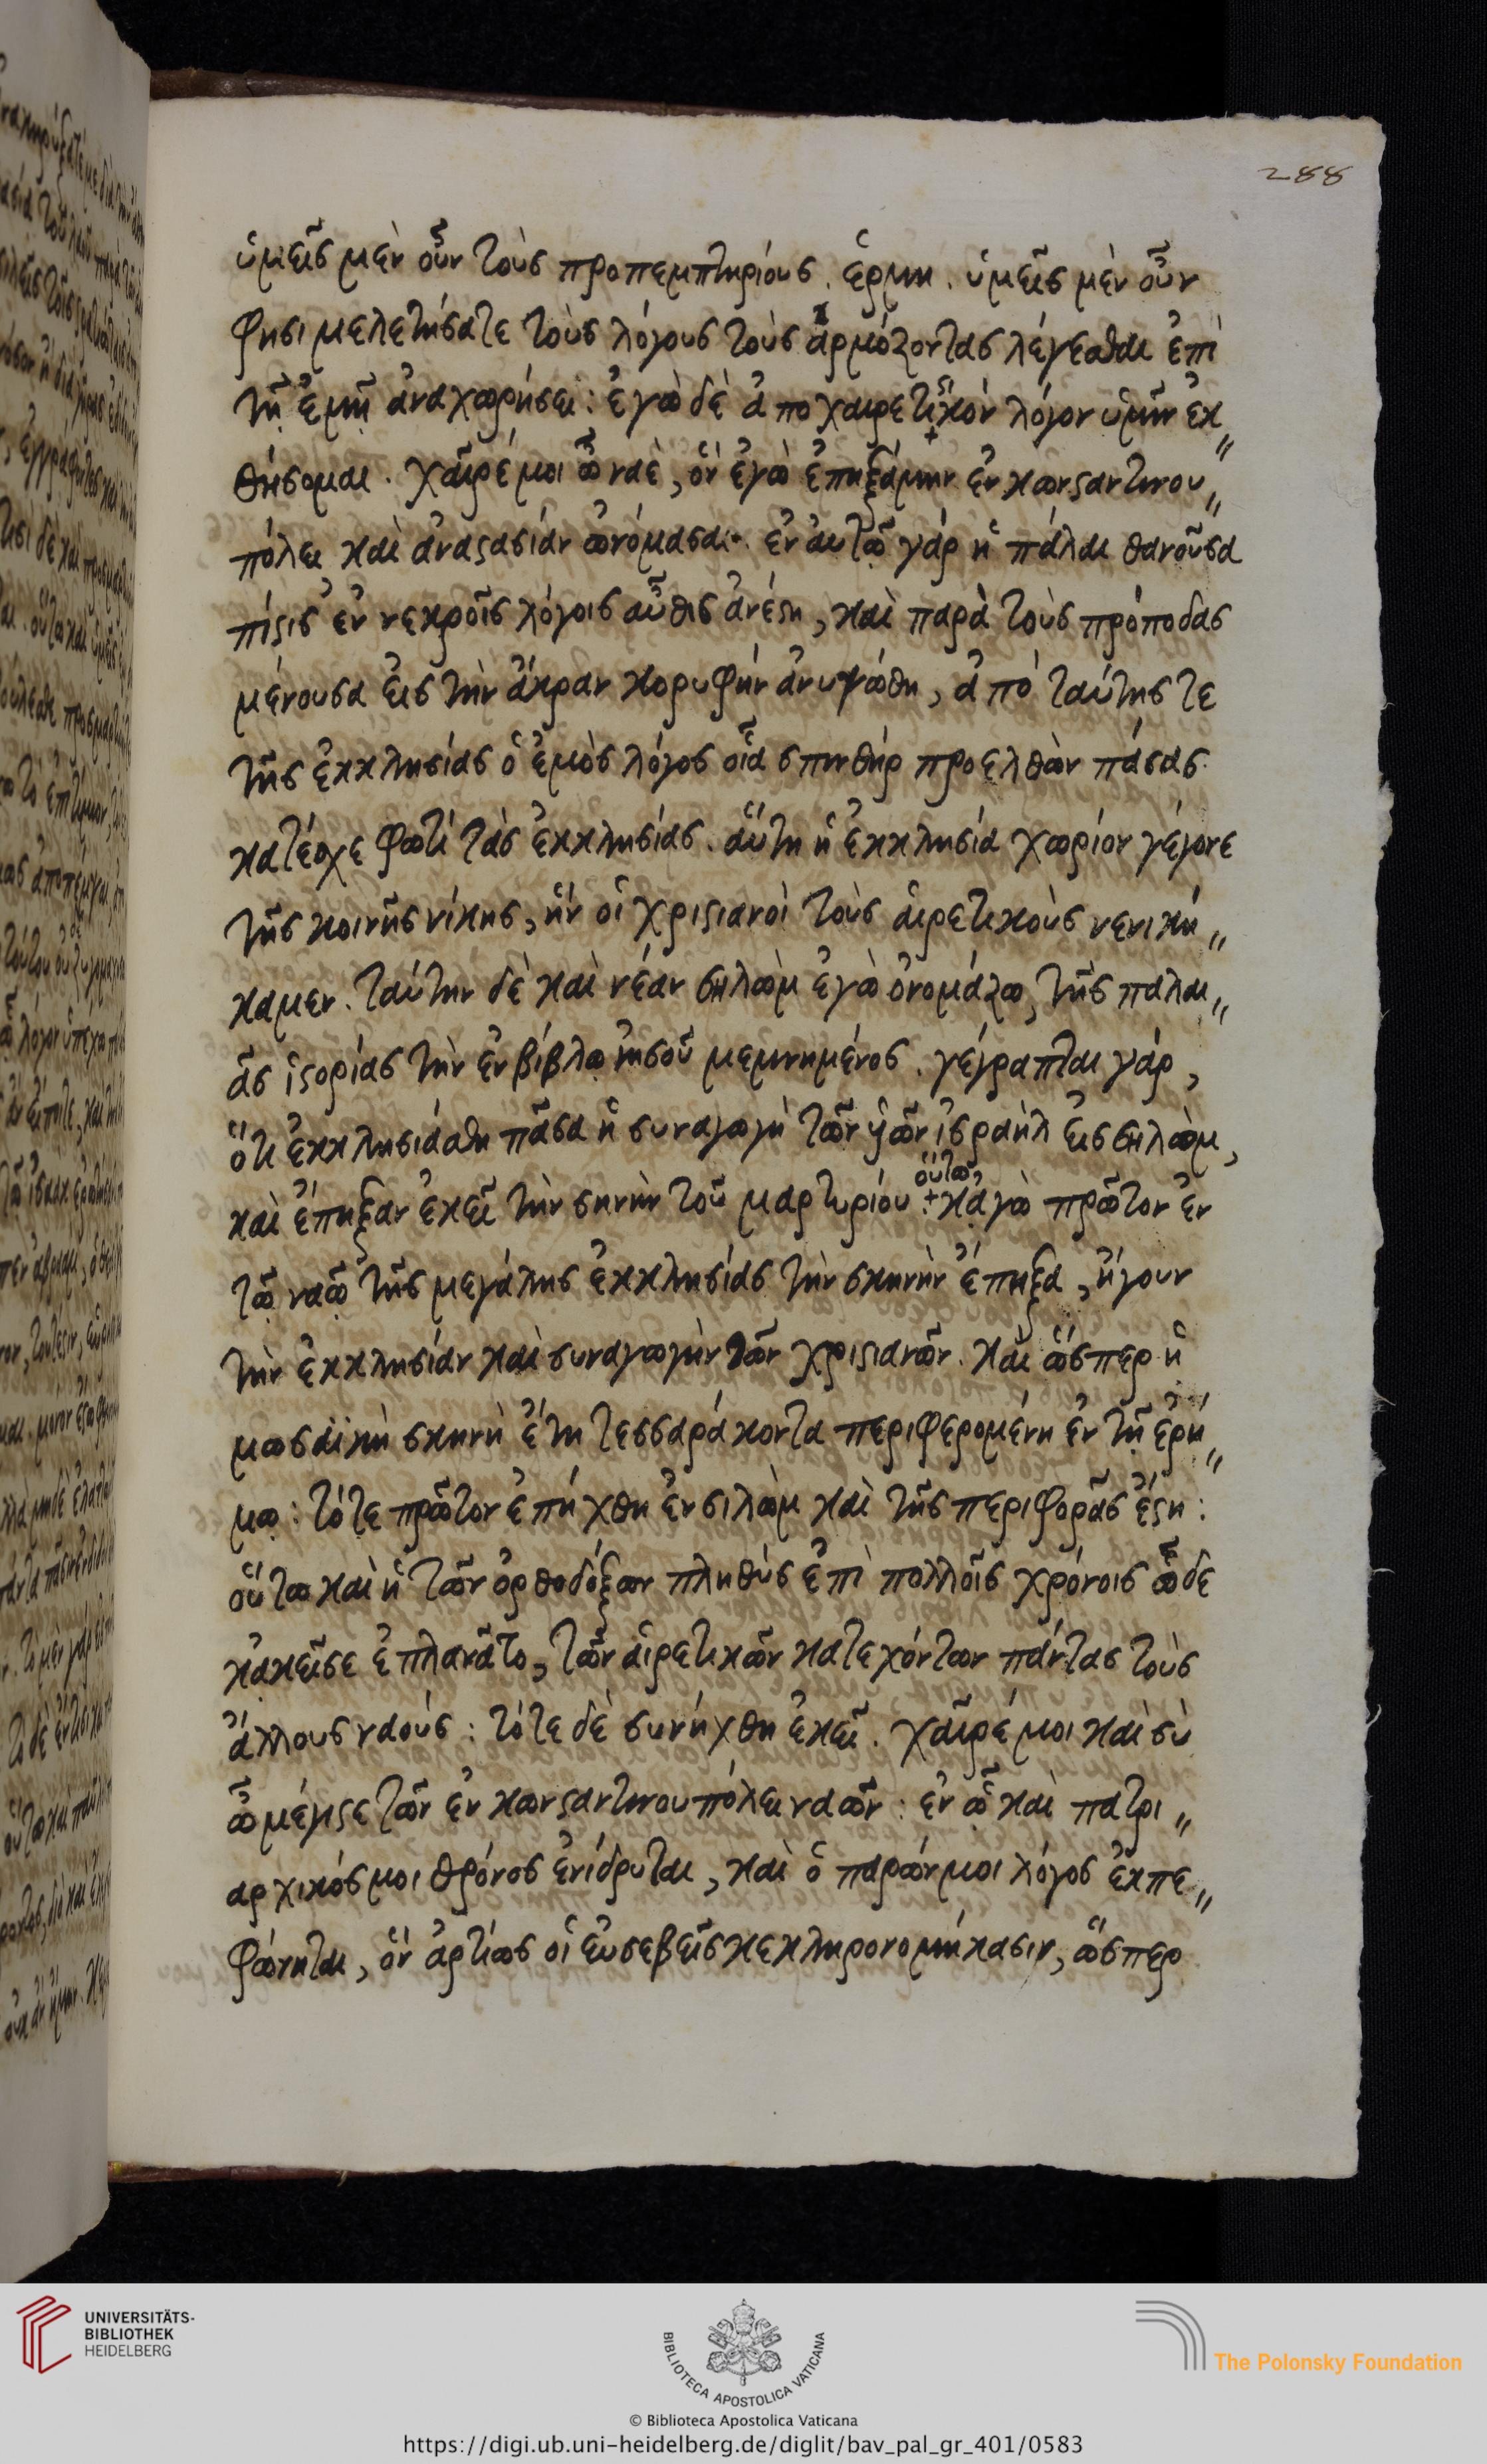 288
ὑμεῖς μὲν οὖν τοὺς προπεμπτηρίους. ἑρμη. ὑμεῖς μὲν οὖν
φησι μελετήσατε τοὺς λόγους τοὺς ἁρμόζοντας λέγεσθαι ἐπὶ
τῇ ἐμῇ ἀναχωρήσει: ἐγὼ δὲ ἀποχαιρετικὸν λόγον ὑμῖν ἐκ„
θήσομαι. χαῖρέ μοι ὦ ναὲ, ὃν ἐγὼ ἐπηξάμην ἐν κωνσταντινου„
πόλει καὶ ἀναστασίαν ὠνόμασα. ἐν αὐτῷ γάρ ἡ πάλαι θανοῦσα
πίστις ἐν νεκροῖς λόγοις αὖθις ἀνέστη, καὶ παρὰ τοὺς πρόποδας
μένουσα εἰς τὴν ἄκραν κορυφήν ἀνυψώθη, ἀπό ταύτης τε
τῆς ἐκκλησίας ὁ ἐμὸς λόγος οἷα σπινθήρ προελθὼν πάσας
κατέσχε φωτί τὰς ἐκκλησίας. αὕτη ἡ ἐκκλησία χωρίον γέγονε
τῆς κοινῆς νίκης, ἣν οἱ χριστιανοὶ τοὺς αἱρετικοὺς νενική„
καμεν. ταύτην δὲ καὶ νέαν σηλὼμ ἐγὼ ὀνομάζω, τῆς παλαι„
ᾶς ἱστορίας τὴν ἐν βίβλῳ ἰησοῦ μεμνημένος. γέγραπται γάρ,
ὅτι ἐκκλησιάσθη πᾶσα ἡ συναγωγὴ τῶν ὑῶν ἰσραὴλ εἰς σηλὼμ,
καὶ ἔπηξαν ἐκεῖ τὴν σηνὴν τοῦ μαρτυρίου. + οὕτω κἀγὼ πρῶτον ἐν
τῷ ναῷ τῆς μεγάλης ἐκκλησίας τὴν σκηνὴν ἔπηξα, ἤγουν
τὴν ἐκκλησίαν καὶ συναγωγὴν τῶν χριστιανῶν. καὶ ὥσπερ ἡ
μωσαϊκὴ σκηνὴ ἔτη τεσσαράκοντα περιφερομένη ἐν τῇ ἐρή„
μῳ: τότε πρῶτον ἐπήχθη ἐν σιλὼμ καὶ τῆς περιφορᾶς ἔστη:
οὕτω καὶ ἡ τῶν ὀρθοδόξων πληθὺς ἐπὶ πολλοῖς χρόνοις ὧδε
κἀκεῖσε ἐπλανᾶτο, τῶν αἱρετικῶν κατεχόντων πάντας τοὺς
ἄλλους ναούς: τότε δὲ συνήχθη ἐκεῖ. χαῖρέ μοι καὶ σὺ
ὦ μέγιστε τῶν ἐν κωνσταντινουπόλει ναῶν: ἐν ᾧ καὶ πατρι„
αρχικός μοι θρόνος ἐνίδρυται, καὶ ὁ παρών μοι λόγος ἐκπε„
φώνηται, ὃν ἀρτίως οἱ εὐσεβεῖς κεκληρονομήκασιν, ὥσπερ
UNIVERSITÄTS-
BIBLIOTHEK
HEIDELBERG
BIBLIOTECA APOSTOLICA VATICANA
The Polonsky Foundation
© Biblioteca Apostolica Vaticana
https://digi.ub.uni-heidelberg.de/diglit/bav_pal_gr_401/0583